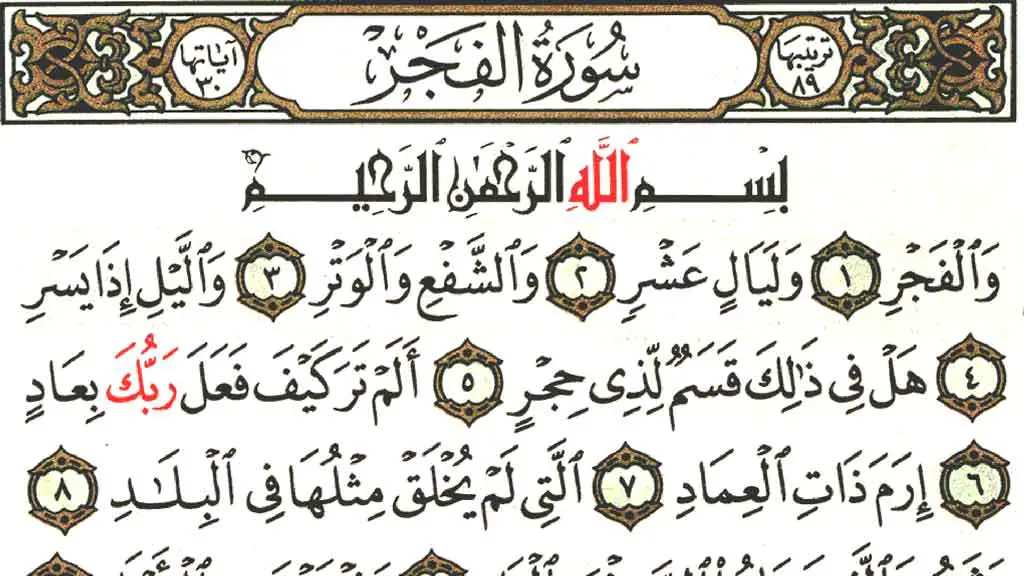 ترتيبها ٨٩ سُورَةُ الفَجْرِ آياتها ٣٠
بِسْمِ اللَّهِ الرَّحْمَٰنِ الرَّحِيمِ
وَالْفَجْرِ ١ وَلَيَالٍ عَشْرٍ ٢ وَالشَّفْعِ وَالْوَتْرِ ٣ وَالَّيْلِ إِذَا يَسْرِ
٤ هَلْ فِي ذَٰلِكَ قَسَمٌ لِّذِي حِجْرٍ ٥ أَلَمْ تَرَ كَيْفَ فَعَلَ رَبُّكَ بِعَادٍ
٦ إِرَمَ ذَاتِ الْعِمَادِ ٧ الَّتِي لَمْ يُخْلَقْ مِثْلُهَا فِي الْبِلَٰدِ ٨